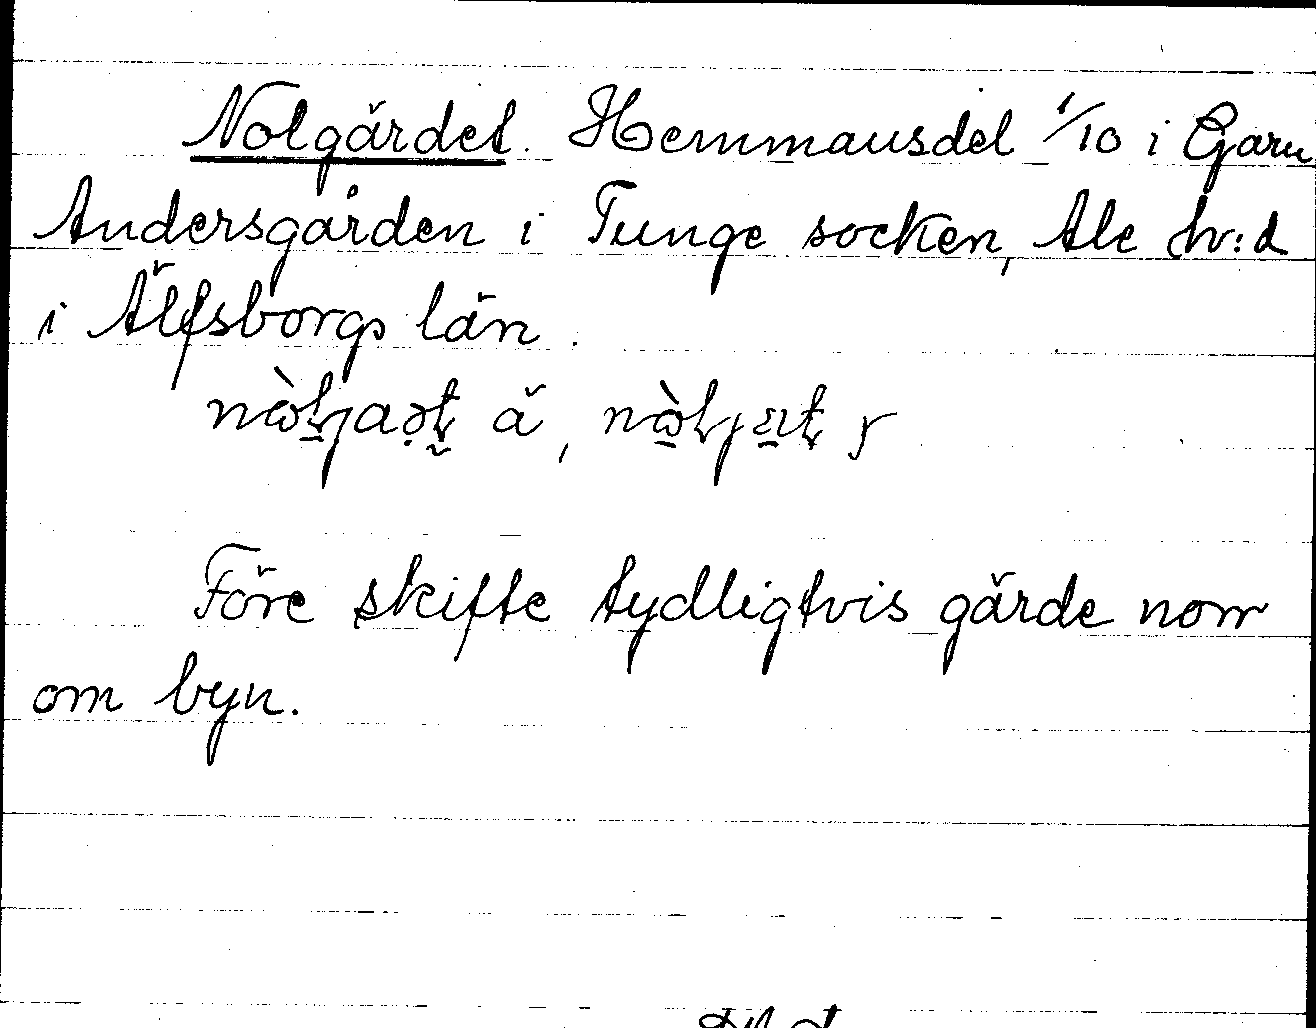 Nolgärdet. Hemmansdel 1/10 i Garn
Andersgården i Tunge socken, Ale hr:d
i Älfsborgs län.
ä,
Före skifte tydligtvis gärde norr
om byn.